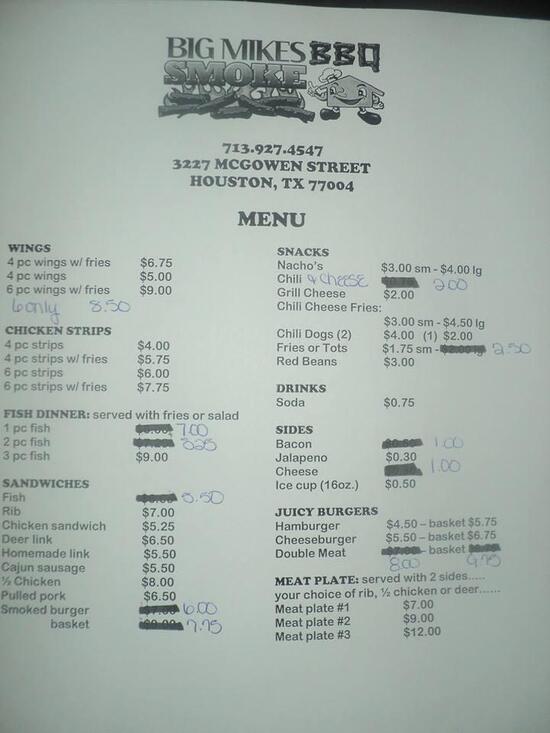 BIG MIKES BBQ
SMOKE
713.927.4547
3227 MCGOWEN STREET
HOUSTON, TX 77004
MENU
WINGS
4 pc wings w/ fries $6.75
4 pc wings $5.00
6 pc wings w/ fries $9.00
6 only 8.50
CHICKEN STRIPS
4 pc strips $4.00
4 pc strips w/ fries $5.75
6 pc strips $6.00
6 pc strips w/ fries $7.75
FISH DINNER: served with fries or salad
1 pc fish 7.00
2 pc fish 8.25
3 pc fish $9.00
SANDWICHES
Fish 5.50
Rib $7.00
Chicken sandwich $5.25
Deer link $6.50
Homemade link $5.50
Cajun sausage $5.50
½ Chicken $8.00
Pulled pork $6.50
Smoked burger 6.00
basket 7.75
SNACKS
Nacho's $3.00 sm - $4.00 lg
Chili & Cheese 2.00
Grill Cheese $2.00
Chili Cheese Fries:
$3.00 sm - $4.50 lg
Chili Dogs (2) $4.00 (1) $2.00
Fries or Tots $1.75 sm - 2.50
Red Beans $3.00
DRINKS
Soda $0.75
SIDES
Bacon 1.00
Jalapeno $0.30
Cheese 1.00
Ice cup (16oz.) $0.50
JUICY BURGERS
Hamburger $4.50 – basket $5.75
Cheeseburger $5.50 – basket $6.75
Double Meat – basket
8.00 9.75
MEAT PLATE: served with 2 sides.....
your choice of rib, ½ chicken or deer......
Meat plate #1 $7.00
Meat plate #2 $9.00
Meat plate #3 $12.00